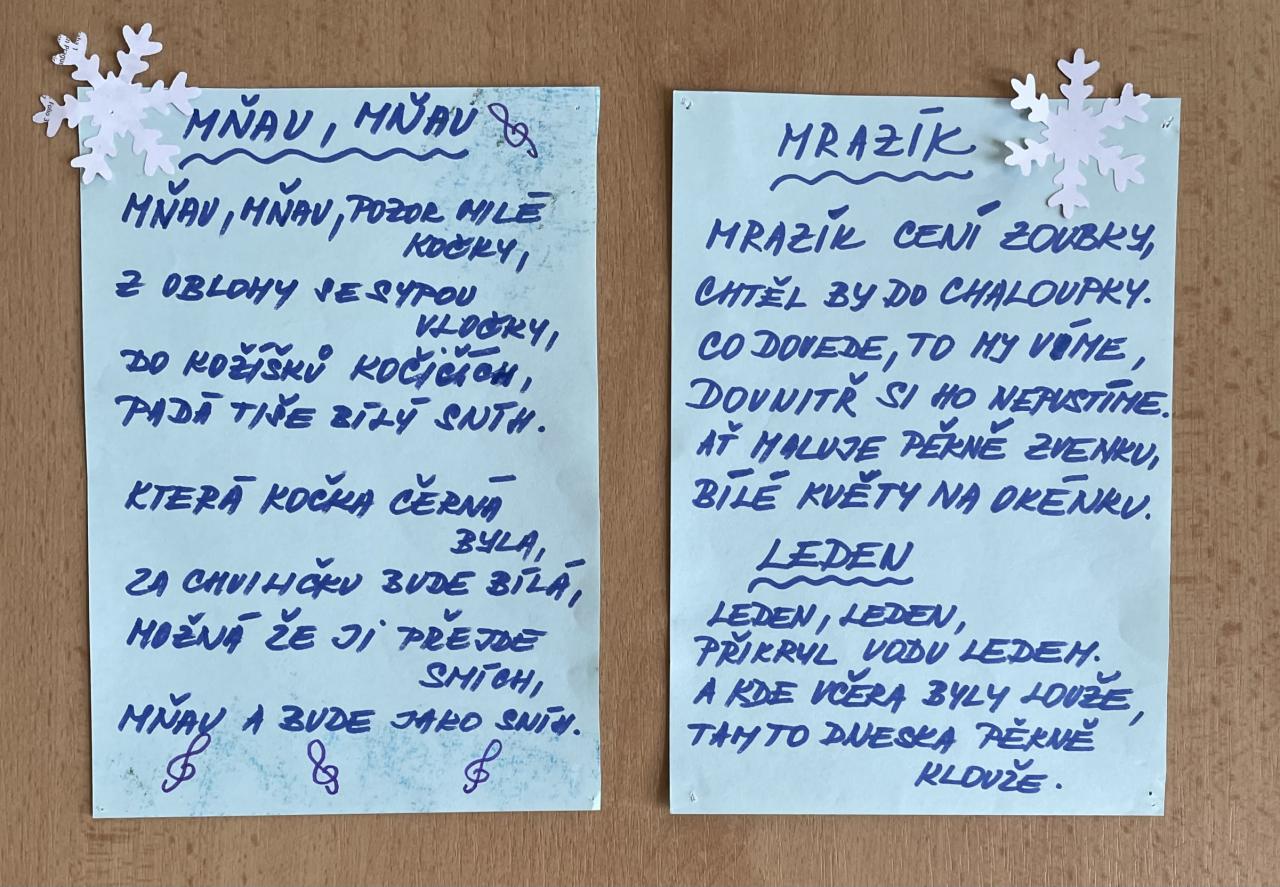 MŇAU, MŇAU
MŇAU, MŇAU, POZOR MILÉ
KOČKY,
Z OBLOHY SE SYPOU
VLOČKY,
DO KOŽÍŠKŮ KOČIČÍCH,
PADÁ TIŠE BÍLÝ SNÍH.
KTERÁ KOČKA ČĚRNÁ
BYLA,
ZA CHVILIČKU BUDE BÍLÁ,
MOŽNÁ ŽE JI PŘEJDE
SMÍCH,
MŇAU A BUDE JAKO SNÍH.
MRAZÍK
MRAZÍK CENÍ ZOUBKY,
CHTĚL BY DO CHALOUPKY.
CO DOVEDE, TO MY VÍME,
DOVNITŘ SI HO NEPUSTÍME.
AŤ MALUJE PĚKNĚ ZVENKU,
BÍLÉ KVĚTY NA OKÉNKU.
LEDEN
LEDEN, LEDEN,
PŘIKRYL VODU LEDEM.
A KDE VČERA BYLY LOUŽE,
TAM TO DNESKA PĚKNĚ
KLOUŽE.